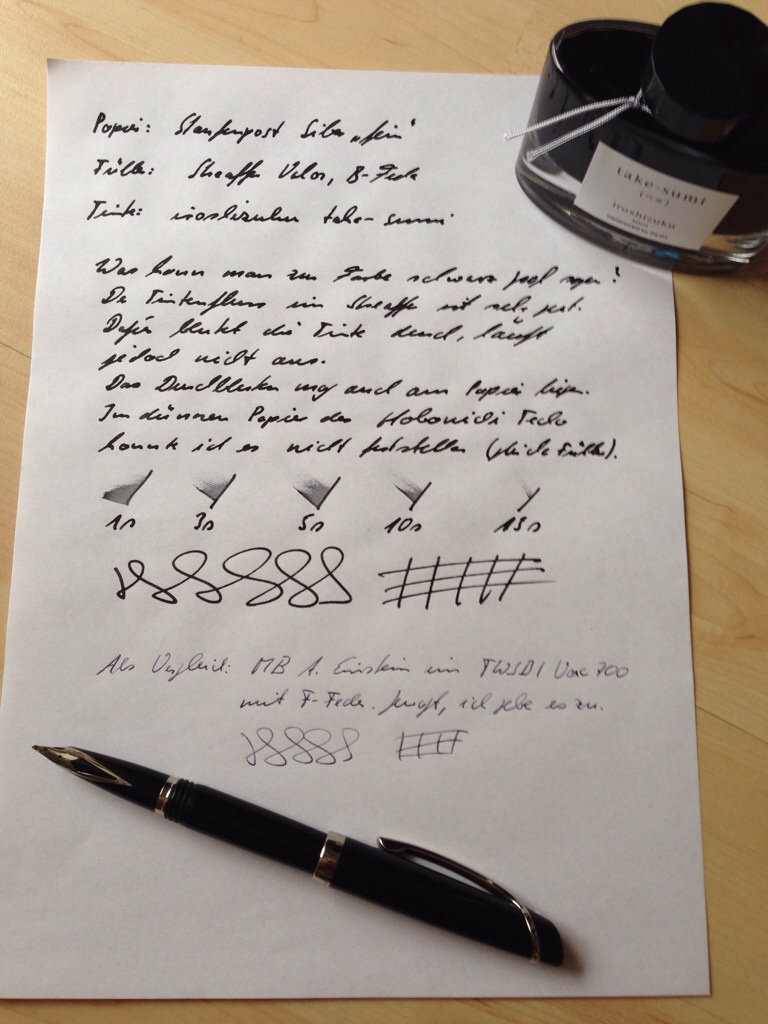 Papier: Staufenpost Silber „fein“
Füller: Sheaffer Valor, B-Feder
Tinte: iroshizuku take-sumi
Was kann man zur Farbe schwarz groß sagen?
Der Tintenfluss im Sheaffer ist sehr gut.
Dafür blutet die Tinte durch, läuft
jedoch nicht aus.
Das Durchbluten mag auch am Papier liegen.
Im dünnen Papier des Hobonichi Techo
konnte ich es nicht feststellen (gleicher Füller).
1s 3s 5s 10s 15s
Als Vergleich: MB A. Einstein im TWSBI Vac 700
mit F-Feder. , ich gebe es zu.
take-sumi
iroshizuku